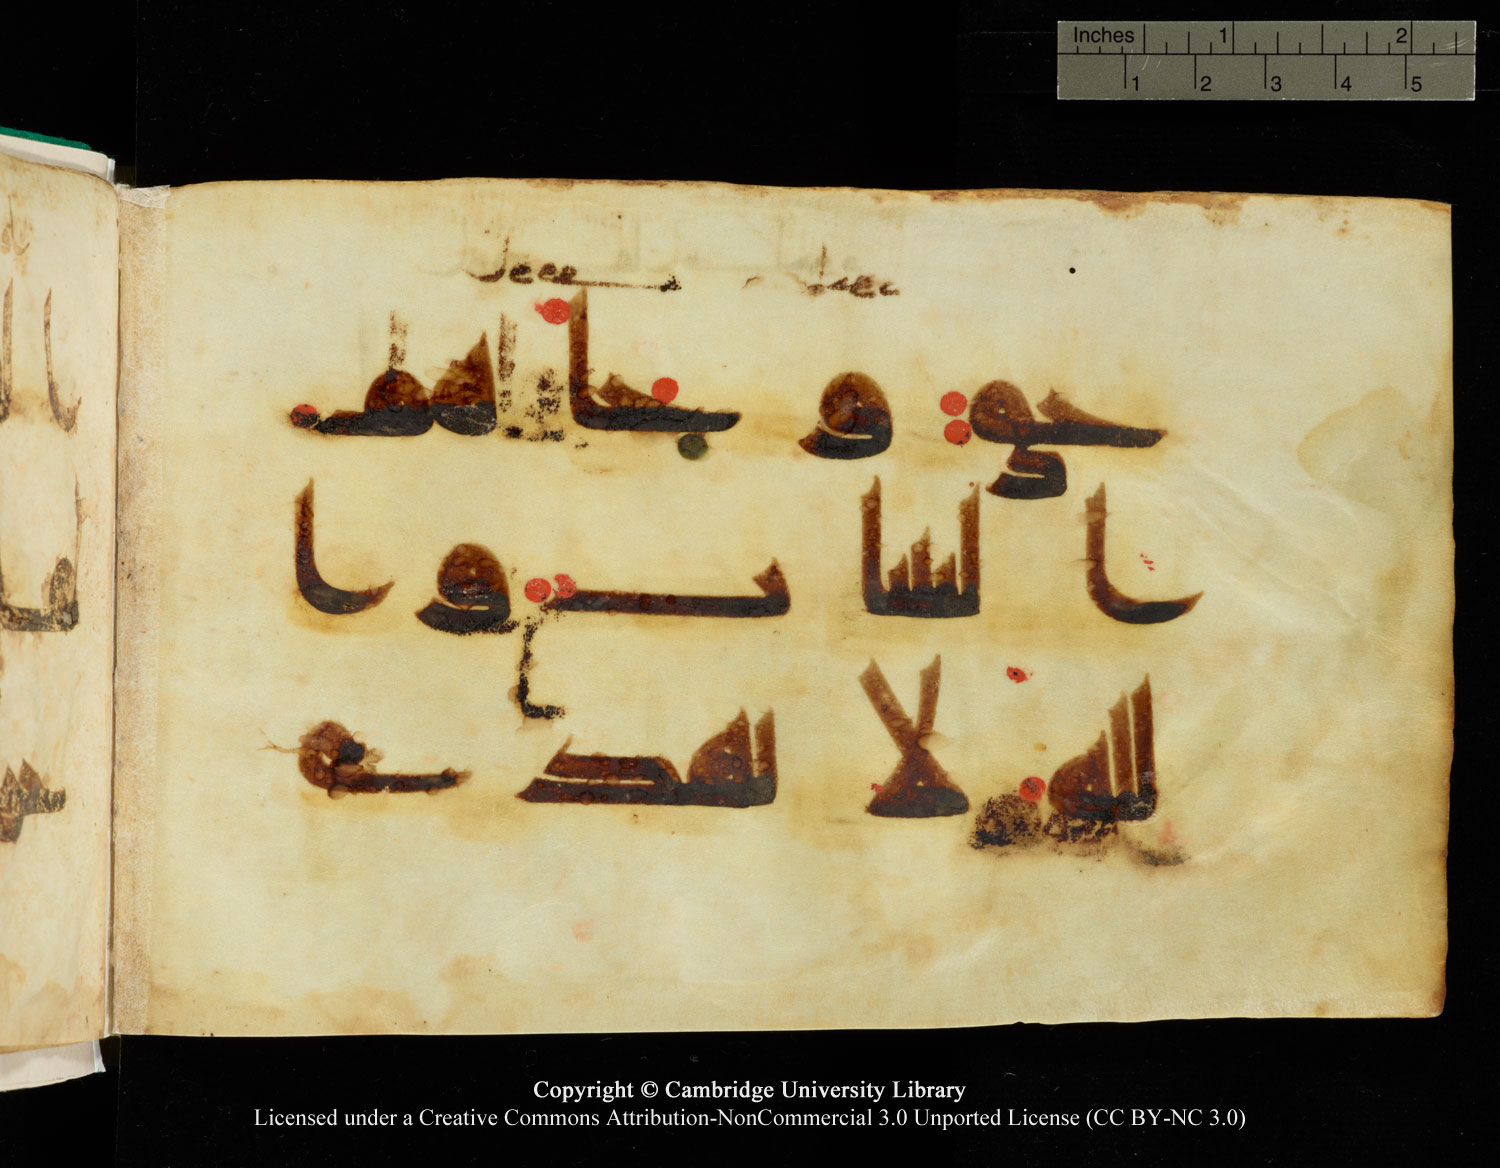 Inches 1 2
1 2 3 4 5
حق و جاهم
ا لبينت و ا
لله لا يهد ى
Copyright © Cambridge University Library
Licensed under a Creative Commons Attribution-NonCommercial 3.0 Unported License (CC BY-NC 3.0)